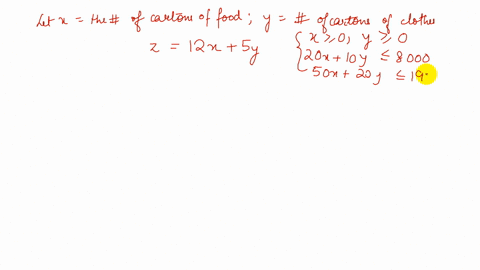 Let x = the # of cartons of food ; y = # of cartons of clothes
z = 12x + 5y
x ≥ 0, y ≥ 0
20x + 10y ≤ 8000
50x + 20y ≤ 19